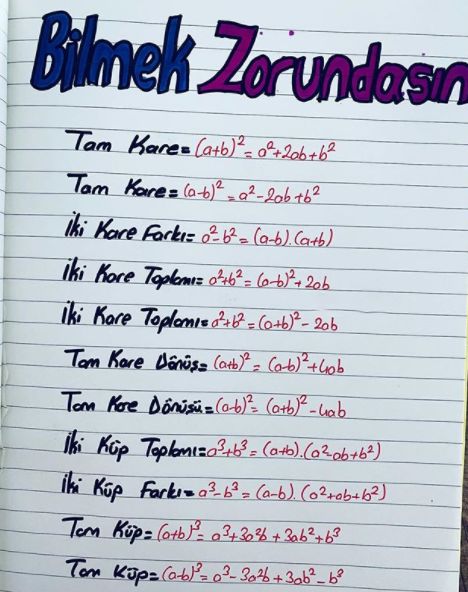 Bilmek Zorundasın
Tam Kare=(a+b)²=a²+2ab+b²
Tam Kare=(a-b)²=a²-2ab+b²
İki Kare Farkı=a²-b²=(a-b).(a+b)
İki Kare Toplamı=a²+b²=(a-b)²+2ab
İki Kare Toplamı=a²+b²=(a+b)²-2ab
Tam Kare Dönüş=(a+b)²=(a-b)²+4ab
Tam Kare Dönüşü=(a-b)²=(a+b)²-4ab
İki Küp Toplamı=a³+b³=(a+b).(a²-ab+b²)
İki Küp Farkı=a³-b³=(a-b).(a²+ab+b²)
Tam Küp=(a+b)³=a³+3a²b+3ab²+b³
Tam Küp=(a-b)³=a³-3a²b+3ab²-b³